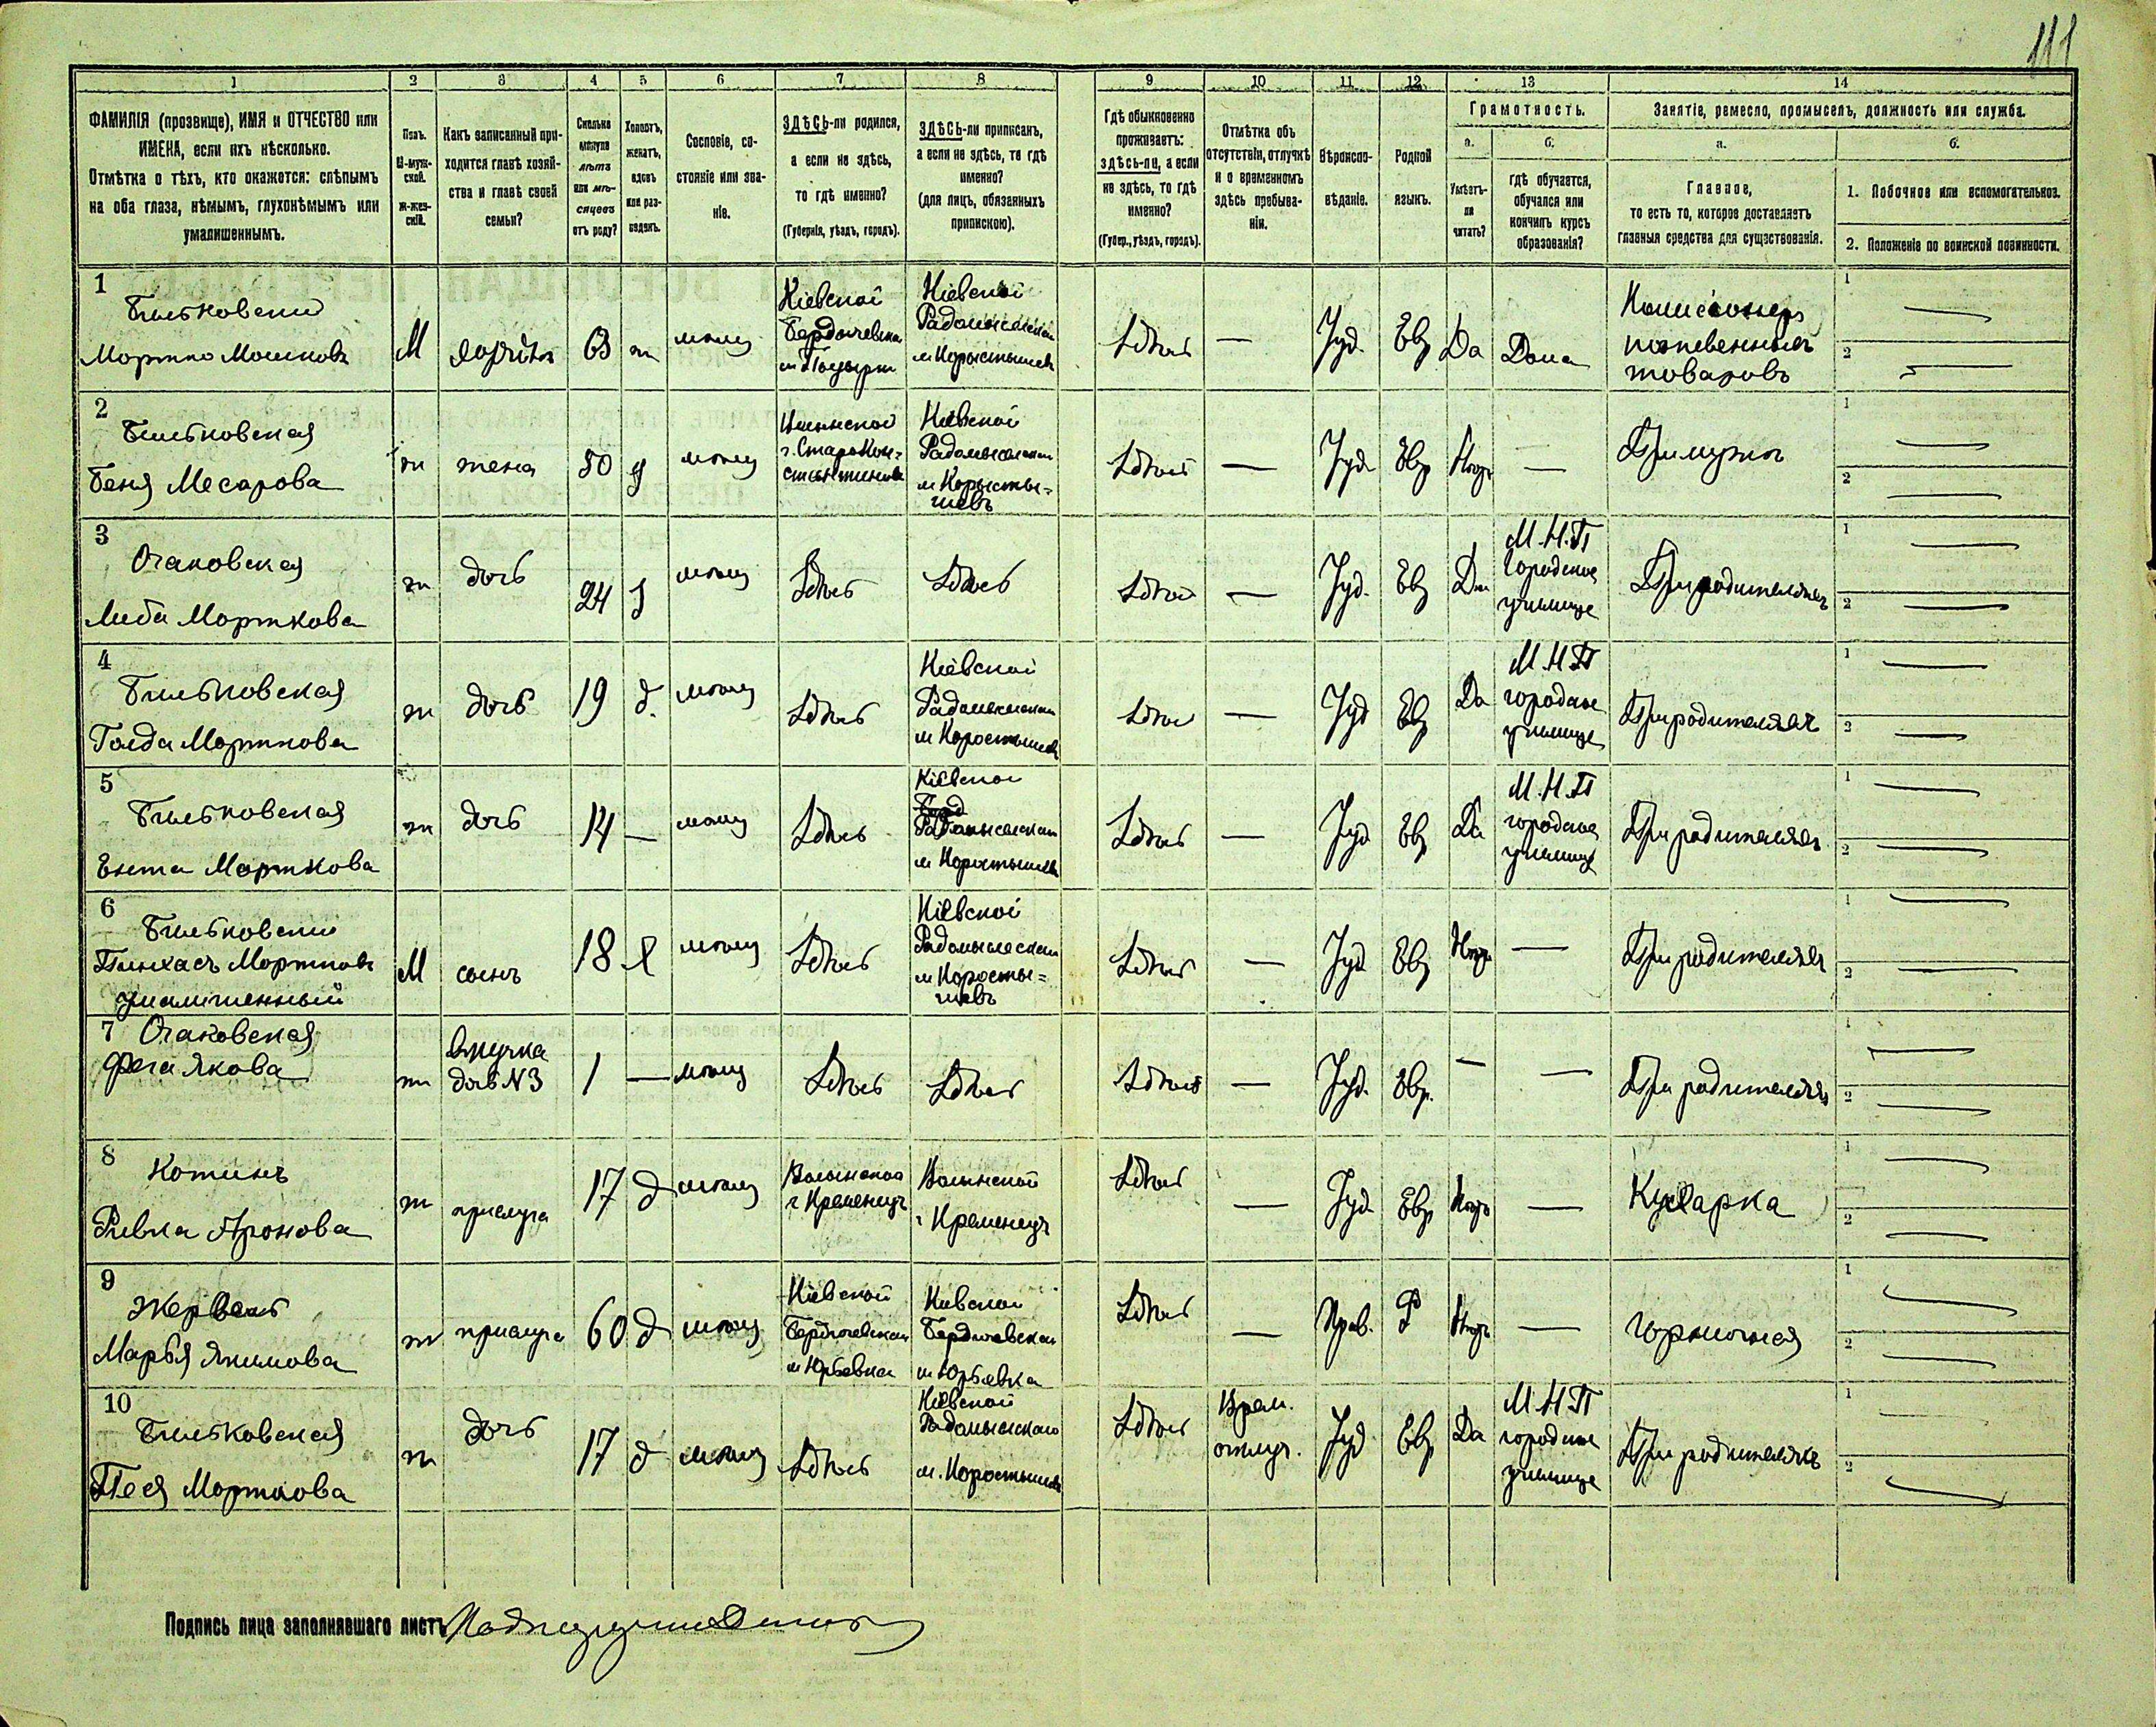 111
1 2 3 4 5 6 7 8 9 10 11 12 13 14
ФАМИЛІЯ (прозвище), ИМЯ и ОТЧЕСТВО или
ИМЕНА, если ихъ нѣсколько.
Отмѣтка о тѣхъ, кто окажется: слѣпымъ
на оба глаза, нѣмымъ, глухонѣмымъ или
умалишеннымъ.
Полъ.
М-муж-
ской.
Ж-жен-
скій.
Какъ записанный при-
ходится главѣ хозяй-
ства и главѣ своей
семьи?
Сколько
минуло
лѣтъ
или мѣ-
сяцевъ
отъ роду?
Холостъ,
женатъ,
вдовъ
или раз-
веденъ.
Сословіе, со-
стояніе или зва-
ніе.
ЗДѢСЬ-ли родился,
а если не здѣсь,
то гдѣ именно?
(Губернія, уѣздъ, городъ).
ЗДѢСЬ-ли приписанъ,
а если не здѣсь, то гдѣ
именно?
(для лицъ, обязанныхъ
припискою).
Гдѣ обыкновенно
проживаетъ:
здѣсь-ли, а если
не здѣсь, то гдѣ
именно?
(Губер., уѣздъ, городъ).
Отмѣтка объ
отсутствіи, отлучкѣ
и о временномъ
здѣсь пребыва-
ніи.
Вѣроиспо-
вѣданіе.
Родной
языкъ.
Грамотность.
а.
Умѣетъ-
ли
читать?
б.
гдѣ обучается,
обучался или
кончилъ курсъ
образованія?
Занятіе, ремесло, промыселъ, должность или служба.
а.
Главное,
то есть то, которое доставляетъ
главныя средства для существованія.
б.
1. Побочное или вспомогательное.
2. Положеніе по воинской повинности.
1
Бильковский
Мортко Мошковъ
М
63
ж
мѣщ
Кіевской
Бердичевска
Кіевской
Радомысльскаго
м Коростышевъ
Здѣсь
—
Іуд.
Евр
Да
Дома
Комисіонеръ
товаровъ
1
2
2
Бильковская
Беня Месарова
ж
жена
50
з
мѣщ
г. Старокон-
стантиновъ
Кіевской
Радомысльскаго
м Коросты-
шевъ
Здѣсь
—
Іуд.
Евр
Нѣтъ
—
При мужѣ
1
2
3
Очаковская
Либа Морткова
ж
дочь
24
з
мѣщ
Здѣсь
Здѣсь
Здѣсь
—
Іуд.
Евр
Да
М.Н.П
городское
училище
При родителяхъ
1
2
4
Бильковская
Голда Морткова
ж
дочь
19
д.
мѣщ
Здѣсь
Кіевской
Радомысльскаго
м Коростышевъ
Здѣсь
—
Іуд
Евр
Да
М.Н.П
городское
училище
При родителяхъ
1
2
5
Бильковская
Ента Морткова
ж
дочь
14
—
мѣщ
Здѣсь
Кіевской
Радомысльскаго
м Коростышевъ
Здѣсь
—
Іуд
Евр
Да
М.Н.П
городское
училище
При родителяхъ
1
2
6
Бильковский
Пинхасъ Мортковъ
умалишенный
М
сынъ
18
х
мѣщ
Здѣсь
Кіевской
Радомысльскаго
м Коросты-
шевъ
Здѣсь
—
Іуд
Евр
Нѣтъ
—
При родителяхъ
1
2
7
Очаковская
Фега Якова
ж
Внучка
дочь №3
1
—
мѣщ
Здѣсь
Здѣсь
Здѣсь
—
Іуд.
Евр.
—
—
При родителяхъ
1
2
8
Котинъ
Ривка Аронова
ж
прислуга
17
д
мѣщ
Волынской
г Кременецъ
Волынской
г Кременецъ
Здѣсь
—
Іуд.
Евр
Нѣтъ
—
Кухарка
1
2
9
Марья Якимова
ж
прислуга
60
д
мѣщ
Кіевской
Бердичевскаго
м Юрьевка
Кіевской
Бердичевскаго
м Юрьевка
Здѣсь
—
Прав.
Р
Нѣтъ
—
Горничная
1
2
10
Бильковская
Песя Морткова
ж
дочь
17
д
мѣщ
Здѣсь
Кіевской
Радомысльскаго
м. Коростышевъ
Здѣсь
Врем.
отлуч.
Іуд
Евр
Да
М.Н.П
городское
училище
При родителяхъ
1
2
Подпись лица заполнявшаго листъ